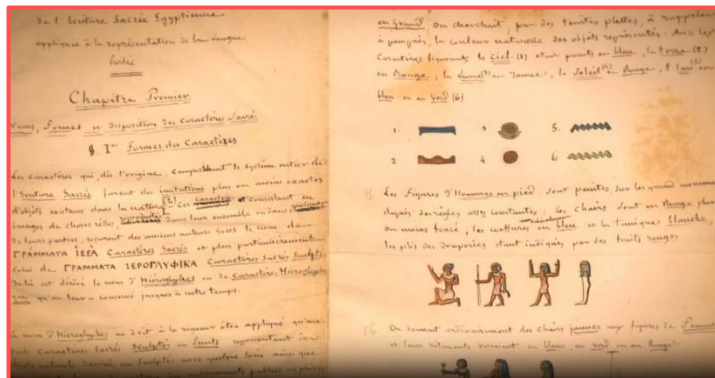 De l'Ecriture Sacrée Egyptienne
appliquée à la représentation de la langue
Parlée
Chapitre Premier.
Noms, Formes et disposition des caractères Sacrés.
§. Ier Formes des Caractères
Les caractères qui, dès l'origine, composèrent le système entier de
l'Ecriture Sacrée furent des imitations plus ou moins exactes
d'objets existans dans la nature. Ces caractères consistant en
images de choses réelles, reproduites dans leur ensemble ou dans
de leurs parties, reçurent des anciens auteurs Grecs le nom de
ΓΡΑΜΜΑΤΑ ΙΕΡΑ Caractères Sacrés et plus particulièrement
celui de ΓΡΑΜΜΑΤΑ ΙΕΡΟΓΛΥΦΙΚΑ Caractères Sacrés Sculptés
De là est dérivé le nom d'Hiéroglyphes ou de Caractères Hiérogly
qu'on leur a conservé jusques à notre temps.
nom d'Hiéroglyphes ne doit à la rigueur être appliqué qu'aux
caractères Sacrés Sculptés ou Peints représentant des
objets naturels avec quelque soin
publics
en Grand on cherchait, par des teintes plates, à rappeler
à peu près, la couleur naturelle des objets représentés: Ainsi les
Caractères figurants le Ciel (1) étaient peints en bleu, la terre (2)
en Rouge, la Lune (3) en Jaune, le Soleil (4) Rouge, l'Eau (5)
bleu ou en Verd (6)
1. 3 5.
2 4 6
15 Les Figures d'Hommes en pied sont peintes sur les grand monumen
d'après des règles assez constantes: les chairs sont en Rouge plus
ou moins foncé, les coëffures en bleu et les tuniques Blanche,
les plis des draperies étant indiqués par des traits rouges
16 On donnait ordinairement des chairs jaunes aux figures de Femme
et leurs vêtements varient en blanc, en verd ou en Rouge.